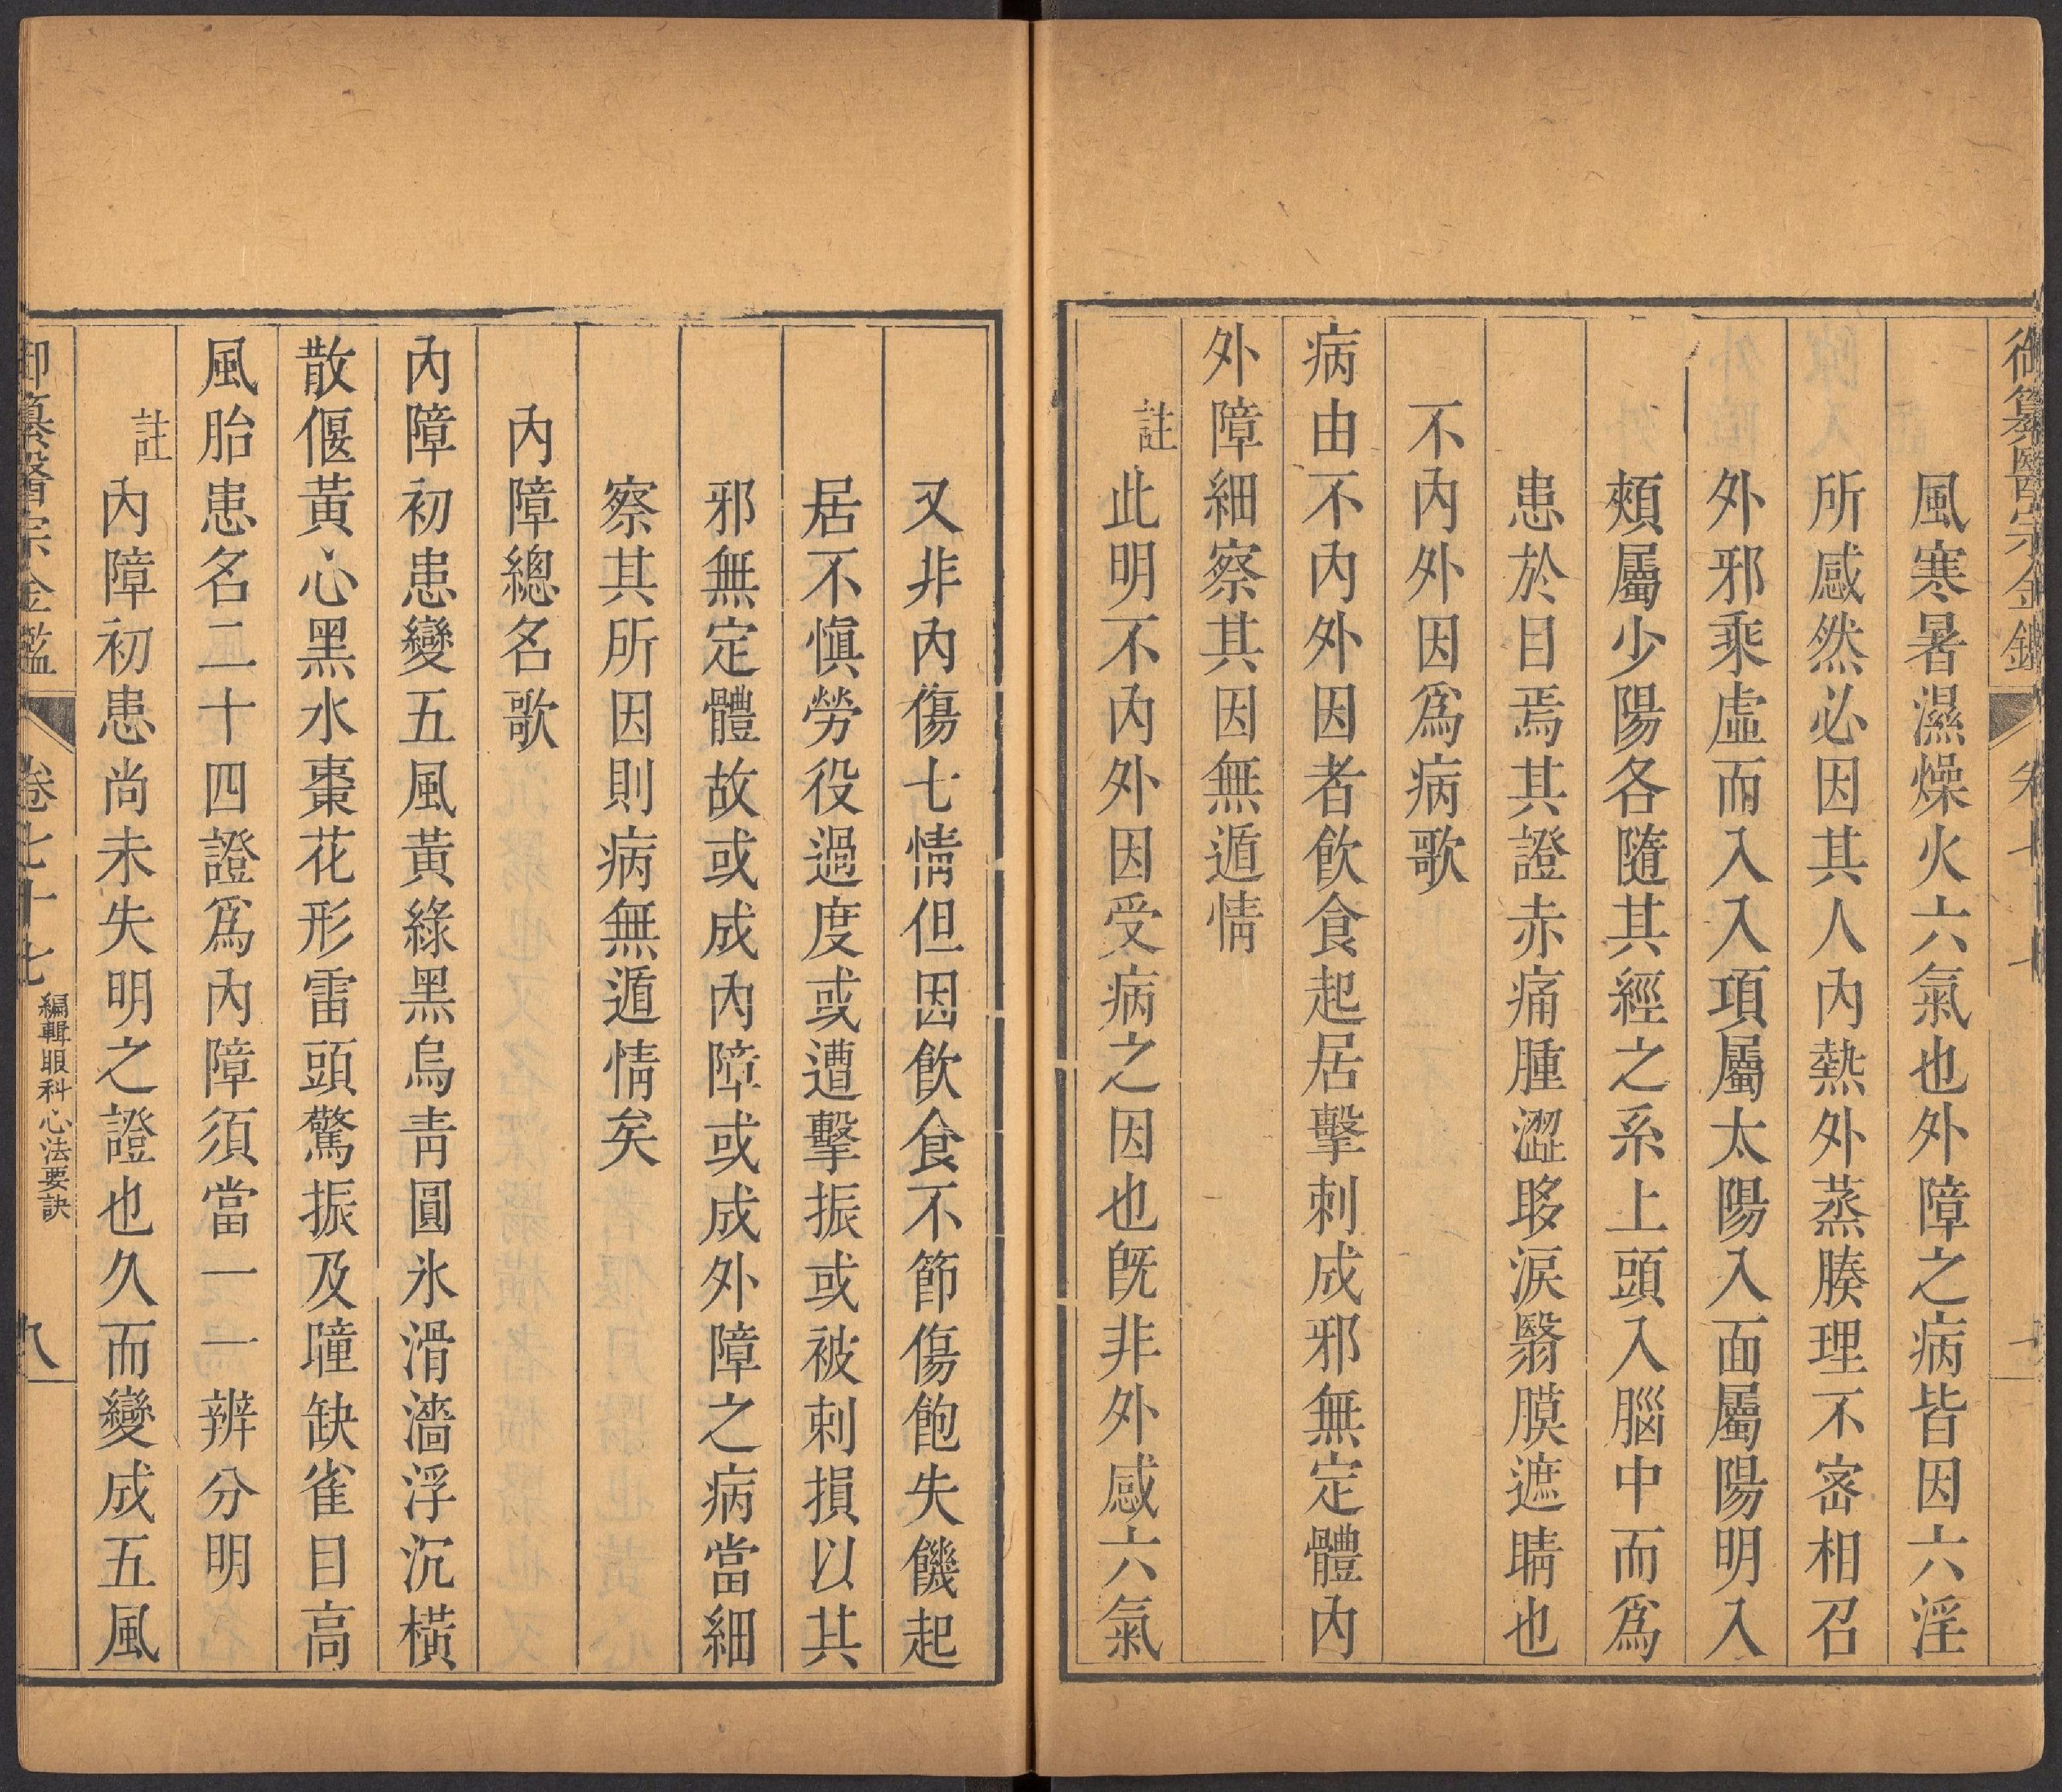 御纂醫宗金鑑
風寒暑濕燥火六氣也外障之病皆因六淫
所感然必因其人內熱外蒸腠理不密相召
外邪乘虛而入入項屬太陽入面屬陽明入
頰屬少陽各隨其經之系上頭入腦中而爲
患於目焉其證赤痛腫澀眵淚翳膜遮睛也
不內外因爲病歌
病由不內外因者飲食起居擊刺成邪無定體內
外障細察其因無遁情
註此明不內外因受病之因也旣非外感六氣
又非內傷七情但因飲食不節傷飽失饑起
居不愼勞役過度或遭擊振或被刺損以其
邪無定體故或成內障或成外障之病當細
察其所因則病無遁情矣
內障總名歌
內障初患變五風黃綠黑烏靑圓氷滑濇浮沉橫
散偃黃心黑水棗花形雷頭驚振及瞳缺雀目高
風胎患名二十四證爲內障須當一一辨分明
註內障初患尚未失明之證也久而變成五風
御纂醫宗金鑑
卷七十七
編輯眼科心法要訣
八